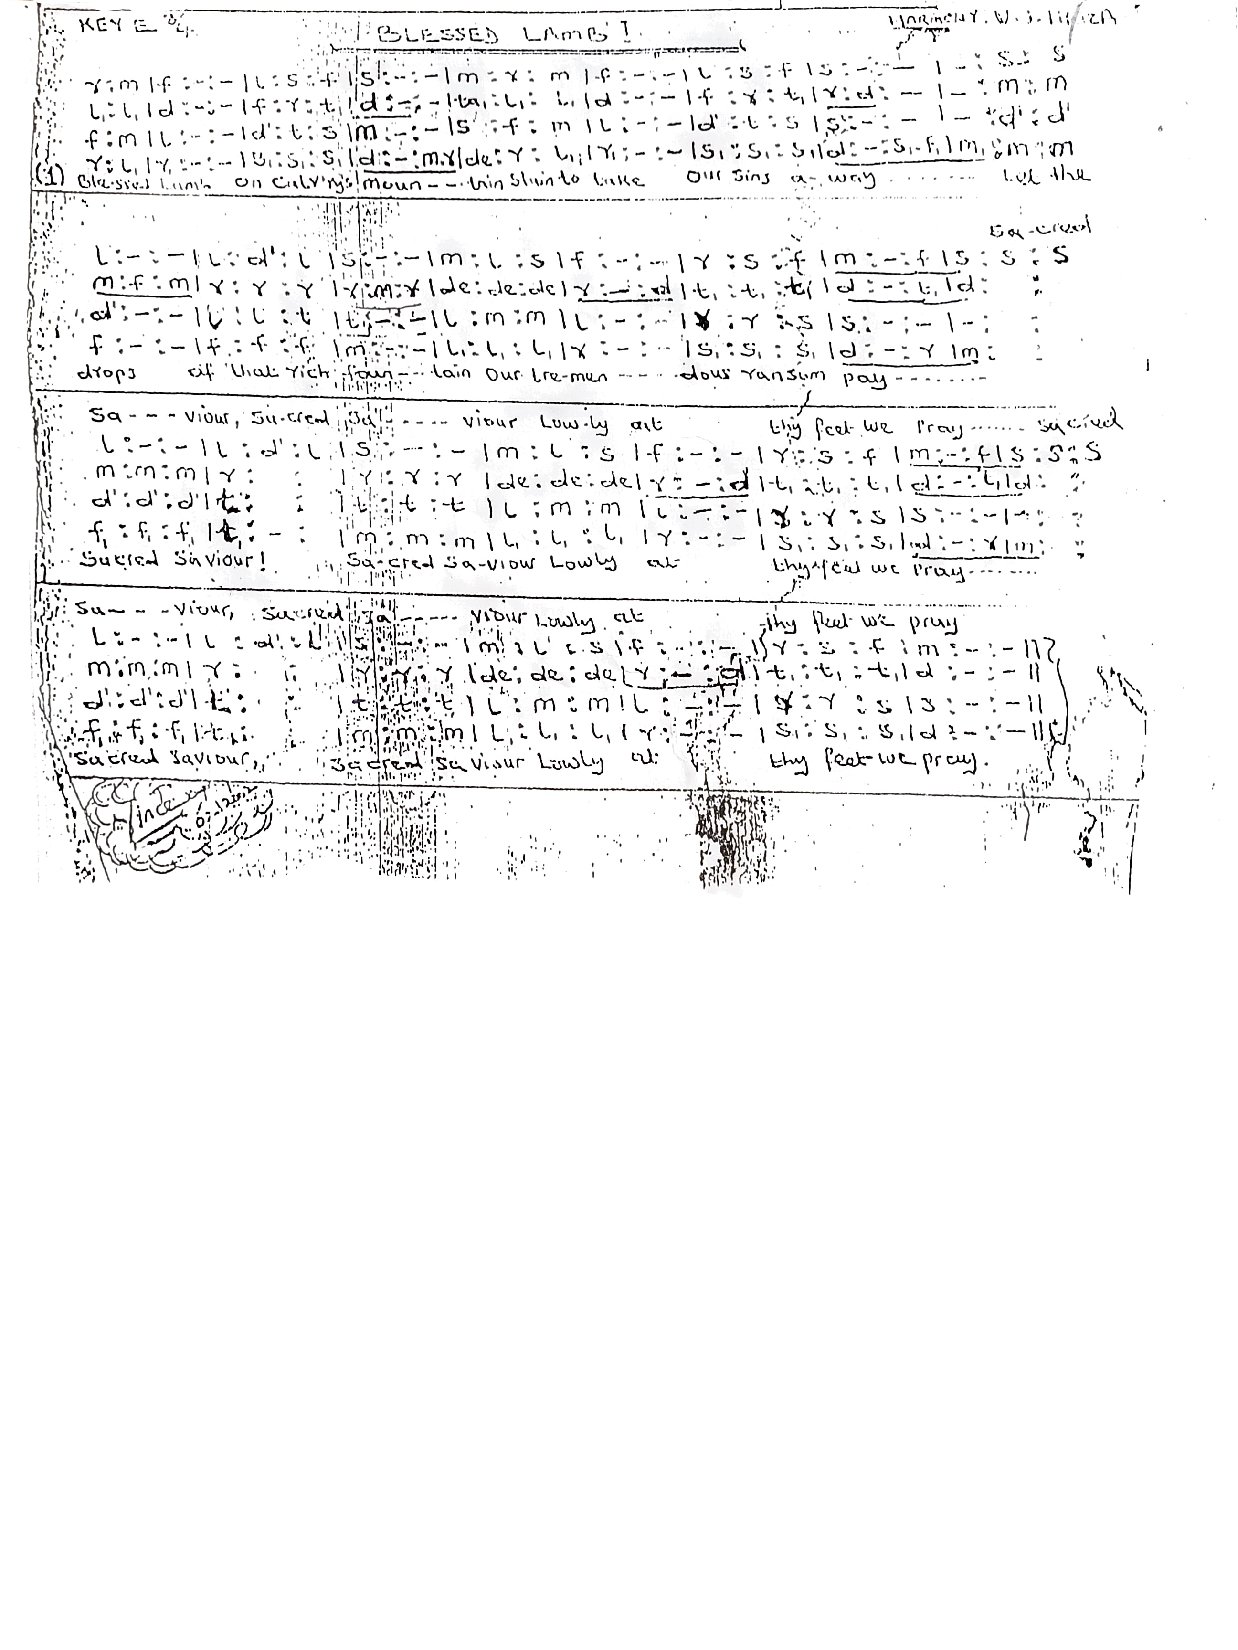 KEY E 3/4
BLESSED LAMB!
HARMONY. W. J.
r : m | f : - : - | l : s : f | s : - : - | m : r : m | f : - : - | l : s : f | s : - : - | - : s : s
l, : l, | d : - : - | f : r : t, | d : - : - | ta, : l, : l, | d : - : - | f : r : t, | r : d : - | - : m : m
f : m | l : - : - | d' : t : s | m : - : - | s : f : m | l : - : - | d' : t : s | s : - : - | - : d' : d'
r : l, | r, : - : - | s, : s, : s, | d : - : m.r | de : r : l, | r, : - : - | s, : s, : s, | d : - : s, . f, | m, : m : m
(1) Blessed Lamb on Calvry's moun - - tain Slain to take Our Sins a - way ........ Let the
Sa-cred
l : - : - | l : d' : l | s : - : - | m : l : s | f : - : - | r : s : f | m : - : f | s : s : s
m : f : m | r : r : r | r : m : r | de : de : de | r : - : d | t, : t, : t, | d : - : t, | d : "
d' : - : - | l : l : t | t : - : - | l : m : m | l : - : - | r : r : s | s : - : - | - : :
f : - : - | f : f : f | m : - : - | l, : l, : l, | r : - : - | s, : s, : s, | d : - : r | m : :
drops of that rich foun - - tain Our tre-men - - - - dous ransom pay - - - - - - - -
Sa - - - viour, Sa-cred Sa - - - - viour Lowly at thy feet we Pray ...... Sacred
l : - : - | l : d' : l | s : - : - | m : l : s | f : - : - | r : s : f | m : - : f | s : s : s
m : m : m | r : : | r : r : r | de : de : de | r : - : d | t, : t, : t, | d : - : t, | d : "
d' : d' : d' | t : : | t : t : t | l : m : m | l : - : - | r : r : s | s : - : - | - : "
f, : f, : f, | t, : - : | m : m : m | l, : l, : l, | r : - : - | s, : s, : s, | d : - : r | m : "
Sacred Saviour! Sa-cred Sa-viour Lowly at thy feet we Pray .......
Sa - - - viour, Sacred Sa - - - - - viour Lowly at thy feet we pray
l : - : - | l : d' : l | s : - : - | m : l : s | f : - : - | r : s : f | m : - : - ||
m : m : m | r : : | r : r : r | de : de : de | r : - : d | t, : t, : t, | d : - : - ||
d' : d' : d' | t : : | t : t : t | l : m : m | l : - : - | r : r : s | s : - : - ||
f, : f, : f, | t, : : | m : m : m | l, : l, : l, | r : - : - | s, : s, : s, | d : - : - ||
Sacred Saviour, Sacred Saviour Lowly at thy feet we pray.